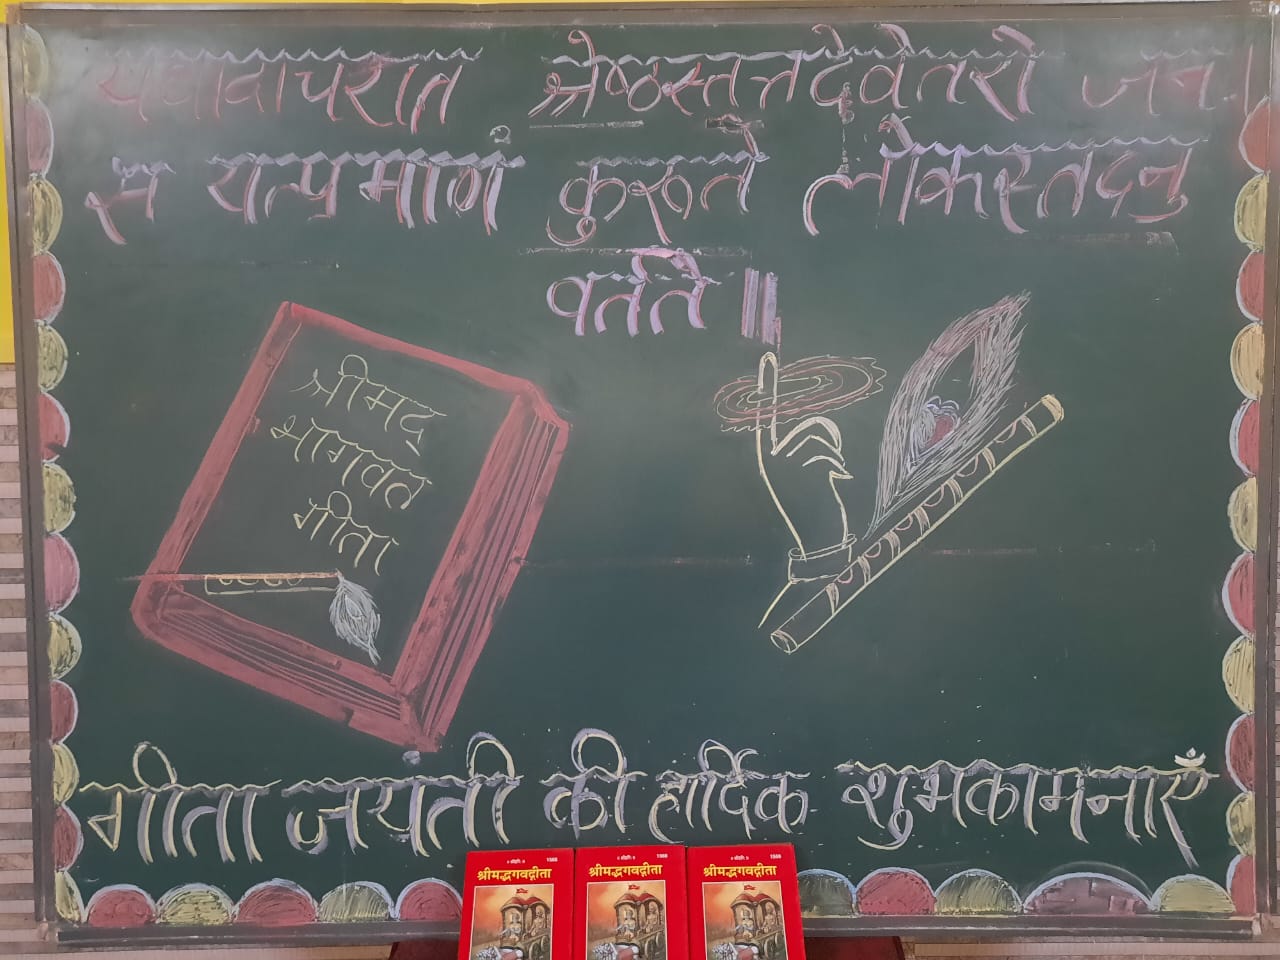 यद्यदाचरति श्रेष्ठस्तत्तदेवेतरो जन:।
स यत्प्रमाणं कुरूते लोकस्तदनु
वर्तते ॥
श्रीमद्
भागवत
गीता
गीता जयंती की हार्दिक शुभकामनाएँ
॥ श्रीहरिः ॥ 1568
श्रीमद्भगवद्गीता
॥ श्रीहरिः ॥ 1568
श्रीमद्भगवद्गीता
॥ श्रीहरिः ॥ 1568
श्रीमद्भगवद्गीता